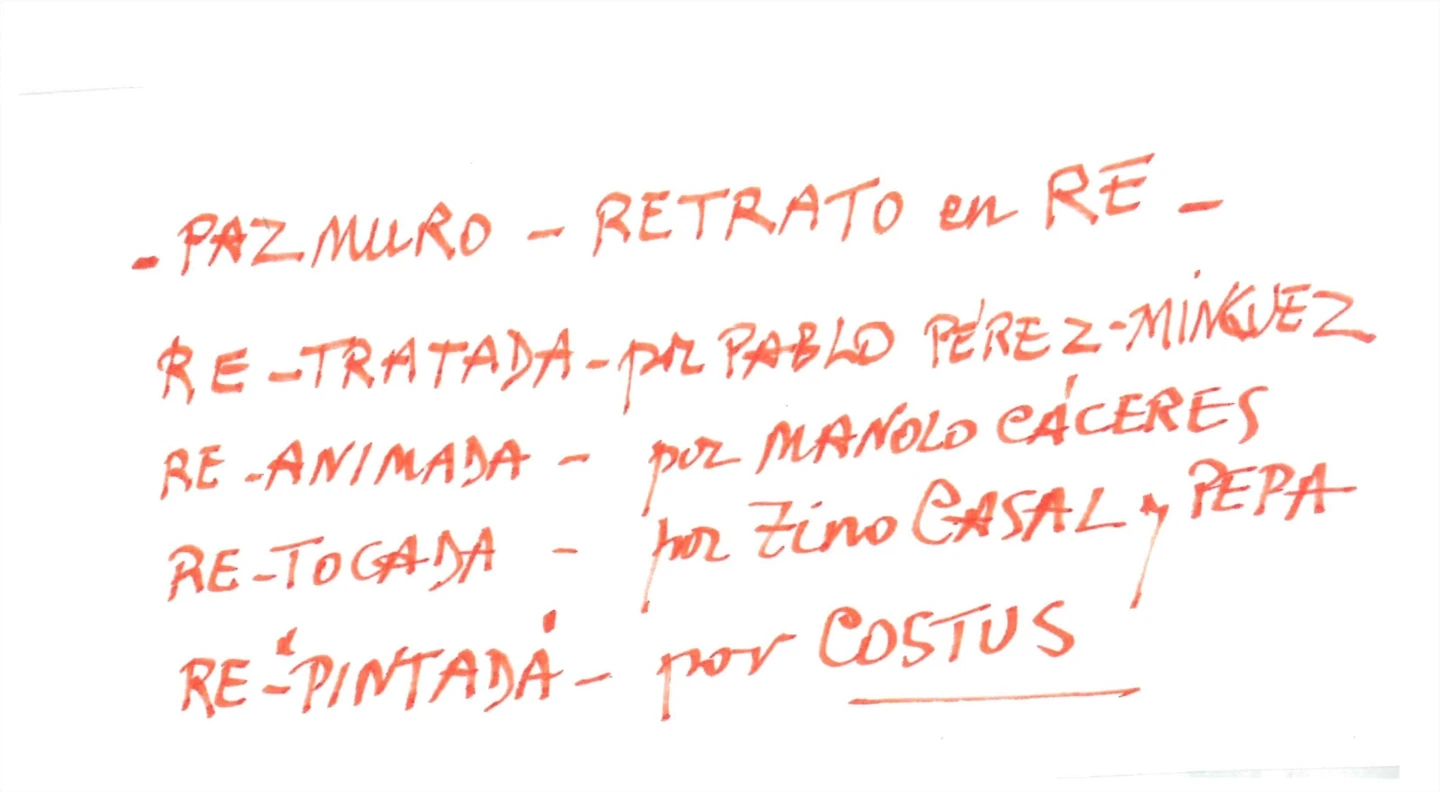 - PAZ MURO - RETRATO en RE -
RE-TRATADA - por PABLO PÉREZ-MÍNGUEZ
RE-ANIMADA - por MANOLO CÁCERES
RE-TOCADA - por Tino CASAL y PEPA
RE-"PINTADA" - por COSTUS